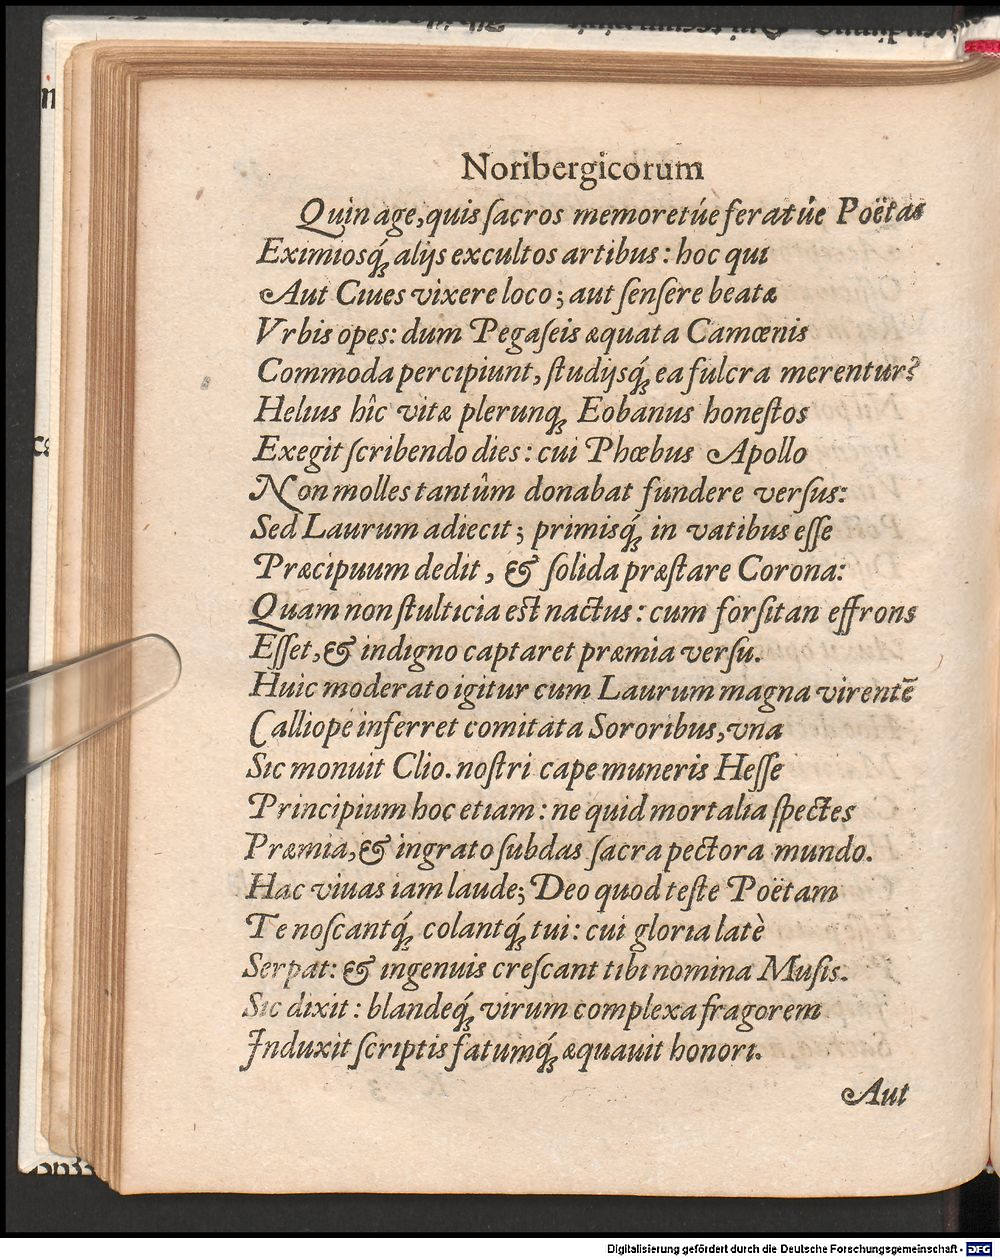 Noribergicorum
Quin age, quis ſacros memoretúe feratúe Poëtas
Eximiosq́; alijs excultos artibus: hoc qui
Aut Ciues vixere loco; aut ſenſere beatæ
Vrbis opes: dum Pegaſeis æquata Camœnis
Commoda percipiunt, ſtudijsq́; ea fulcra merentur?
Helius hîc vitæ plerunq; Eobanus honeſtos
Exegit ſcribendo dies: cui Phœbus Apollo
Non molles tantûm donabat fundere verſus:
Sed Laurum adiecit; primisq́; in vatibus eſſe
Præcipuum dedit, & ſolida præſtare Corona:
Quam non ſtulticia eſt nactus: cum forſitan effrons
Eſſet, & indigno captaret præmia verſu.
Huic moderato igitur cum Laurum magna virentē
Calliope inferret comitata Sororibus, vna
Sic monuit Clio. noſtri cape muneris Heſſe
Principium hoc etiam: ne quid mortalia ſpectes
Præmia, & ingrato ſubdas ſacra pectora mundo.
Hac viuas iam laude; Deo quod teſte Poëtam
Te noſcantq́; colantq́; tui: cui gloria latè
Serpat: & ingenuis creſcant tibi nomina Muſis.
Sic dixit: blandeq́; virum complexa fragorem
Induxit ſcriptis fatumq́; æquauit honori.
Aut
Digitalisierung gefördert durch die Deutsche Forschungsgemeinschaft - DFG